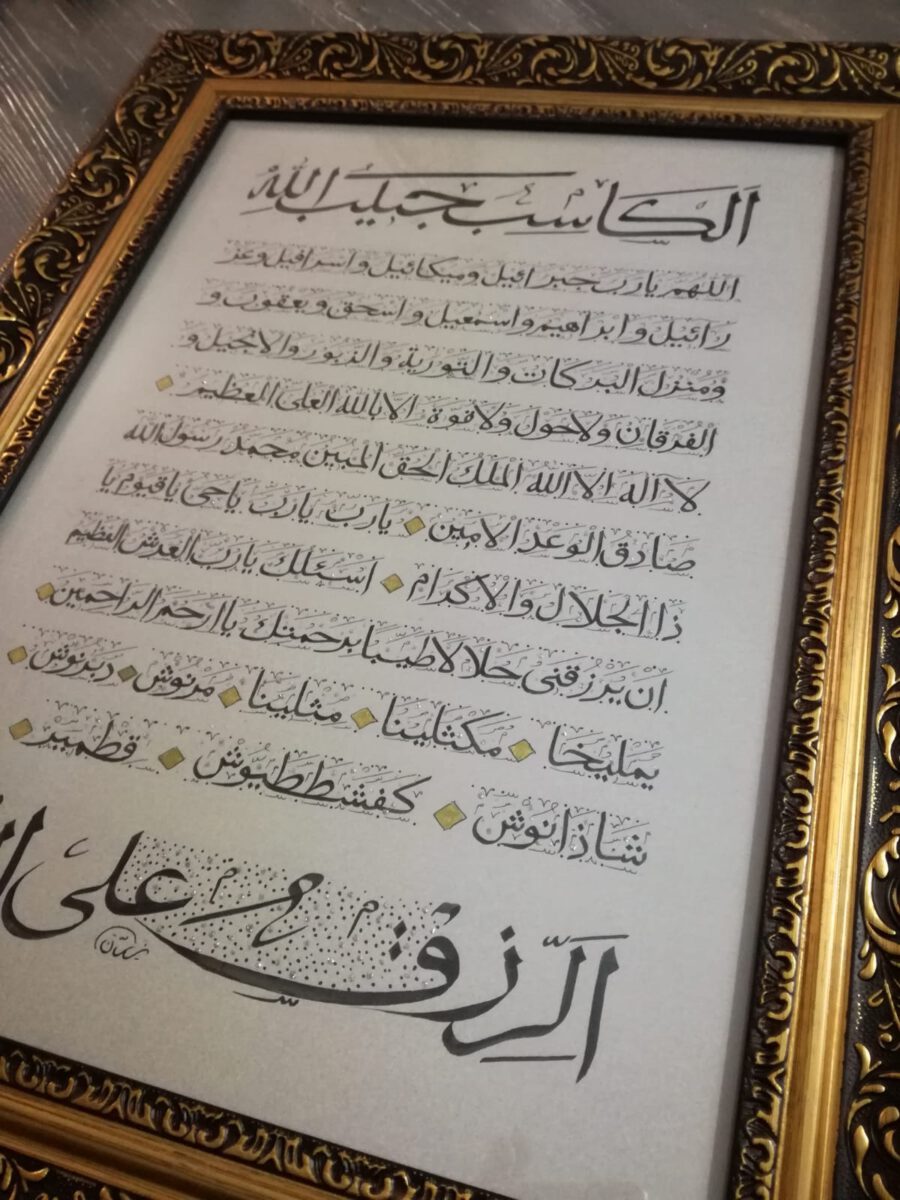 الكاسب حبيب الله
اللهم يارب جبرائيل وميكائيل واسرافيل وعز
رائيل و ابراهيم و اسمعيل و اسحق و يعقوب و
ومنزل البركات و التورية و الزبور و الانجيل و
الفرقان ولاحول ولاقوة الا بالله العلى العظيم
لا اله الا الله الملك الحق المبين محمد رسول الله
صادق الوعد الامين يارب يارب ياحى ياقيوم يا
ذا الجلال والاكرام اسئلك يارب العرش العظيم
ان يرزقنى حلالا طيبا برحمتك يا ارحم الراحمين
يمليخا مكثلينا مثلينا مرنوش دبرنوش
شاذنوش كفشططيوش قطمير
الرزق على